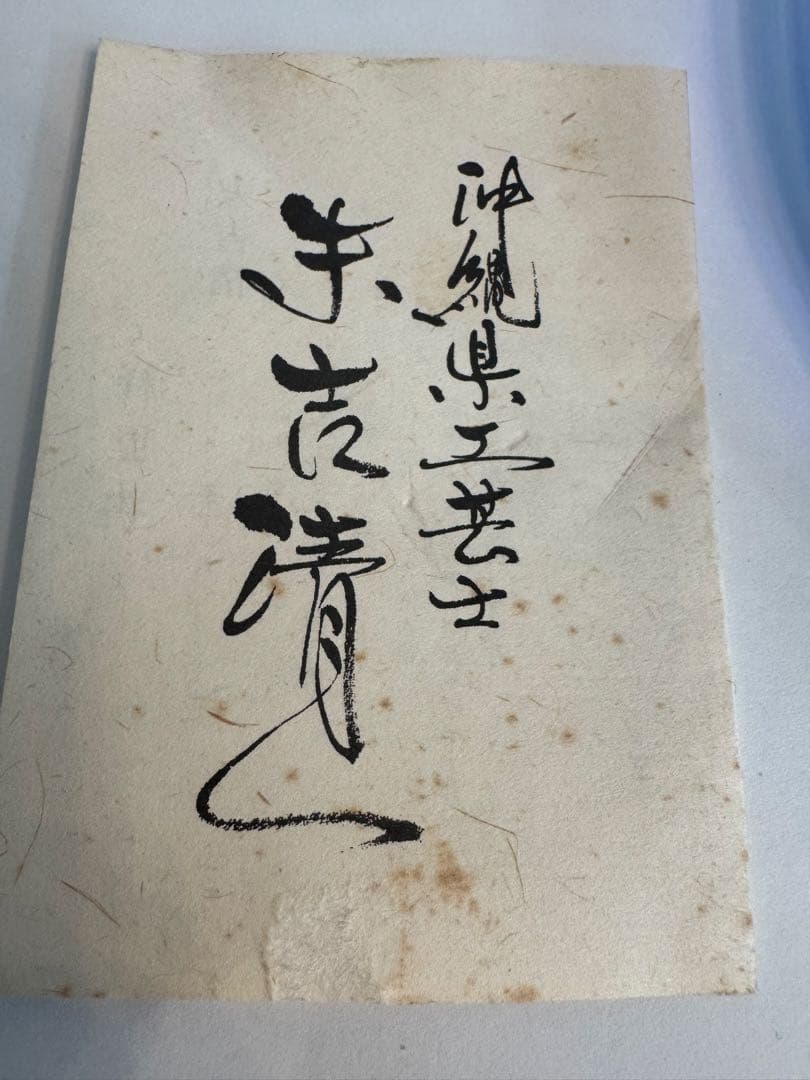 沖縄県工芸士
末吉清一